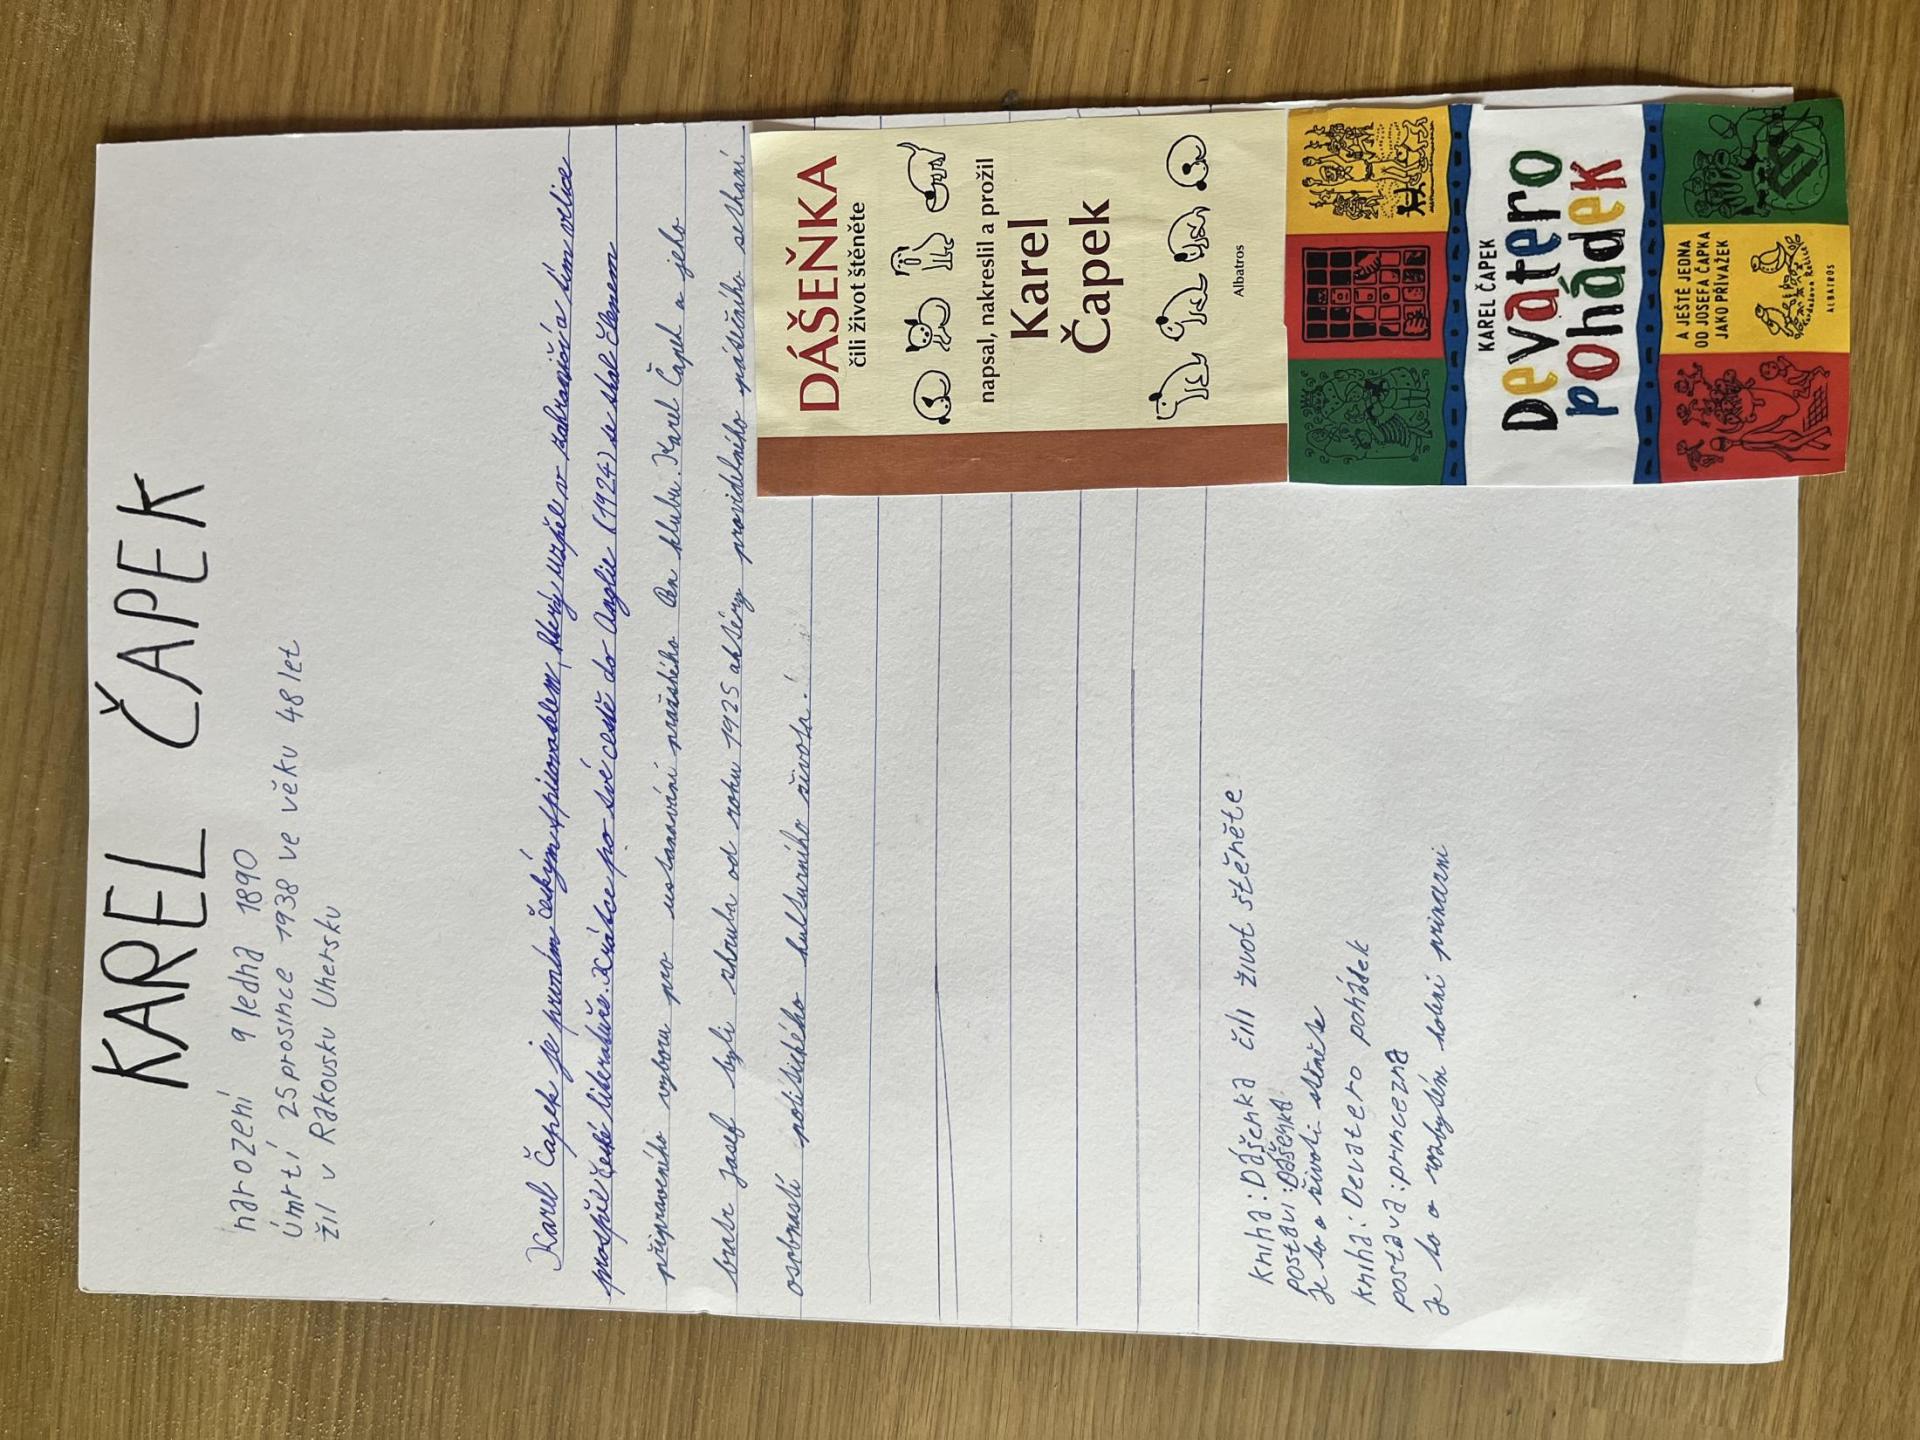 KAREL ČAPEK
narození 9 ledna 1890
úmrtí 25 prosince 1938 ve věku 48 let
žil v Rakousku Uhersku
Karel Čapek je prvním českým spisovatelem, který uspěl v zahraničí a tím velice
prospěl české literatuře. Krátce po své cestě do Anglie (1924) se stal členem
připraveného výboru pro ustanovení pražského Pen klubu. Karel Čapek a jeho
bratr Josef byli zhruba od roku 1925 aktéry pravidelného pátečního setkání
osobností politického kulturního života.
DÁŠEŇKA
čili život štěněte
napsal, nakreslil a prožil
Karel
Čapek
Albatros
KAREL ČAPEK
Devatero
pohádek
A JEŠTĚ JEDNA
OD JOSEFA ČAPKA
JAKO PŘÍVAŽEK
ALBATROS
kniha: Dášenka čili život štěněte
postavi: Dášeňka
Je to o životi stěněte
kniha: Devatero pohádek
postava: princezna
Je to o rozbytém